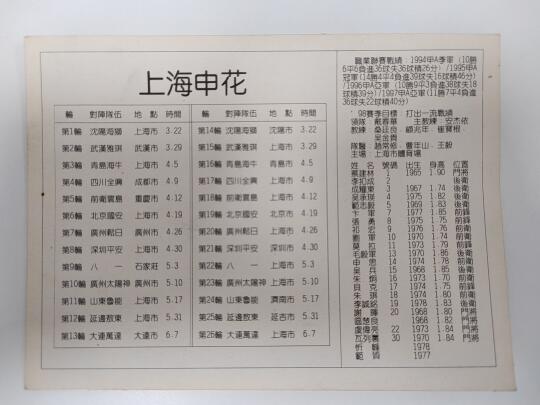 上海申花
輪 對陣隊伍 地點 時間
第1輪 沈陽海獅 上海市 3.22
第2輪 武漢雅琪 武漢市 3.29
第3輪 青島海牛 上海市 4.5
第4輪 四川全興 成都市 4.9
第5輪 前衛寰島 重慶市 4.12
第6輪 北京國安 上海市 4.19
第7輪 廣州松日 廣州市 4.26
第8輪 深圳平安 上海市 4.30
第9輪 八一 石家莊 5.3
第10輪 廣州太陽神 廣州市 5.10
第11輪 山東魯能 上海市 5.17
第12輪 延邊敖東 上海市 5.31
第13輪 大連萬達 大連市 6.7
輪 對陣隊伍 地點 時間
第14輪 沈陽海獅 沈陽市 3.22
第15輪 武漢雅琪 上海市 3.29
第16輪 青島海牛 青島市 4.5
第17輪 四川全興 上海市 4.9
第18輪 前衛寰島 上海市 4.12
第19輪 北京國安 北京市 4.19
第20輪 廣州松日 上海市 4.26
第21輪 深圳平安 深圳市 4.30
第22輪 八一 上海市 5.3
第23輪 廣州太陽神 上海市 5.10
第24輪 山東魯能 濟南市 5.17
第25輪 延邊敖東 延吉市 5.31
第26輪 大連萬達 上海市 6.7
職業聯賽戰績：1994甲A季軍（10勝
6平6負進36球失36球積26分）/1995甲A
冠軍（14勝4平4負進39球失16球積46分）
/1996甲A亞軍（10勝9平3負進38球失18
球積39分）/1997甲A亞軍（11勝7平4負進
36球失22球積40分）
'98賽季目標：打出一流戰績
領隊：戴春華 主教練：安杰依
教練：桑廷良、顧兆年、崔寶根、
吳金貴
隊醫：趙常修、曹年山、王毅
主場：上海市體育場
姓名 號碼 出生 身高 位置
蔡建林 1 1965 1.90 門將
李扣成 2 後衛
成耀東 3 1967 1.74 後衛
吳承瑛 4 1975 1.82 後衛
範志毅 5 1969 1.83 後衛
卞軍 7 1977 1.85 前鋒
張勇 8 1975 1.75 前鋒
祁宏 9 1976 1.76 前衛
劉軍 10 1970 1.74 前衛
莫拉 11 1973 1.79 前鋒
毛毅軍 13 1970 1.86 後衛
申思 14 1973 1.78 前衛
吳兵 15 1968 1.85 前衛
朱炯 16 1973 1.70 前衛
貝克 17 1974 1.75 前鋒
朱琪 18 1974 1.80 前衛
李誠銘 19 1978 1.80 後衛
謝暉 20 1975 1.80 前鋒
1968 1.82 門將
22 1973 1.84 門將
瓦列 30 1970 1.84 門將
忻峰 1978
範 1977